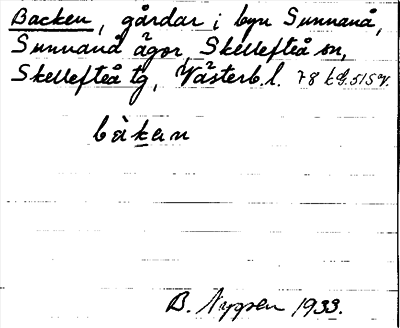 Backen, gårdar i byn Sunnanå,
Sunnanå ägor, Skellefteå sn,
Skellefteå tg, Västerb. l. 78 k G. 515 V.
bàkan
B. Nygren 1933.